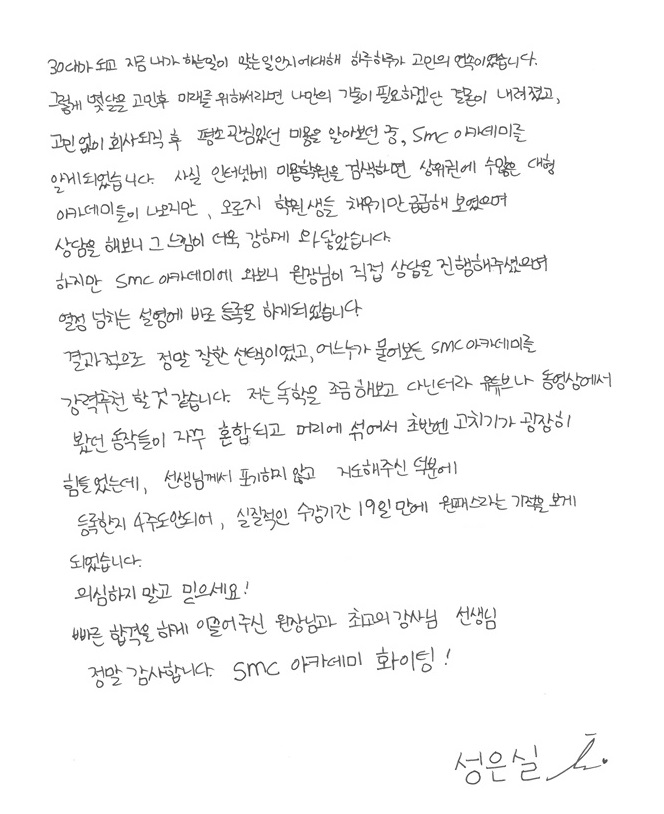 30대가 되고 지금 내가 하는일이 맞는일인지에대해 하루하루가 고민의 연속이였습니다.
그렇게 몇달을 고민후 미래를 위해서라면 나만의 기술이 필요하겠단 결론이 내려졌고,
고민 없이 회사퇴직 후 평소 관심있던 미용을 알아보던 중, SMC 아카데미를
알게되었습니다. 사실 인터넷에 미용학원을 검색하면 상위권에 수많은 대형
아카데미들이 나오지만, 오로지 학원생들 채우기만 급급해 보였으며
상담을 해보니 그 느낌이 더욱 강하게 와닿았습니다.
하지만 SMC 아카데미에 와보니 원장님이 직접 상담을 진행해주셨으며
열정 넘치는 설명에 바로 등록을 하게되었습니다
결과적으로 정말 잘한 선택이였고, 어느누가 물어보든 SMC 아카데미를
강력추천 할 것 같습니다. 저는 독학을 조금 해보고 다닌터라 유튜브나 동영상에서
봤던 동작들이 자꾸 혼합되고 머리에 섞여서 초반엔 고치기가 굉장히
힘들었는데, 선생님께서 포기하지 않고 지도해주신 덕분에
등록한지 4주도안되어, 실질적인 수강기간 19일 만에 원패스라는 기적을 보게
되었습니다.
의심하지 말고 믿으세요!
빠른 합격을 하게 이끌어주신 원장님과 최고의 강사님 선생님
정말 감사합니다. SMC 아카데미 화이팅!
성은실